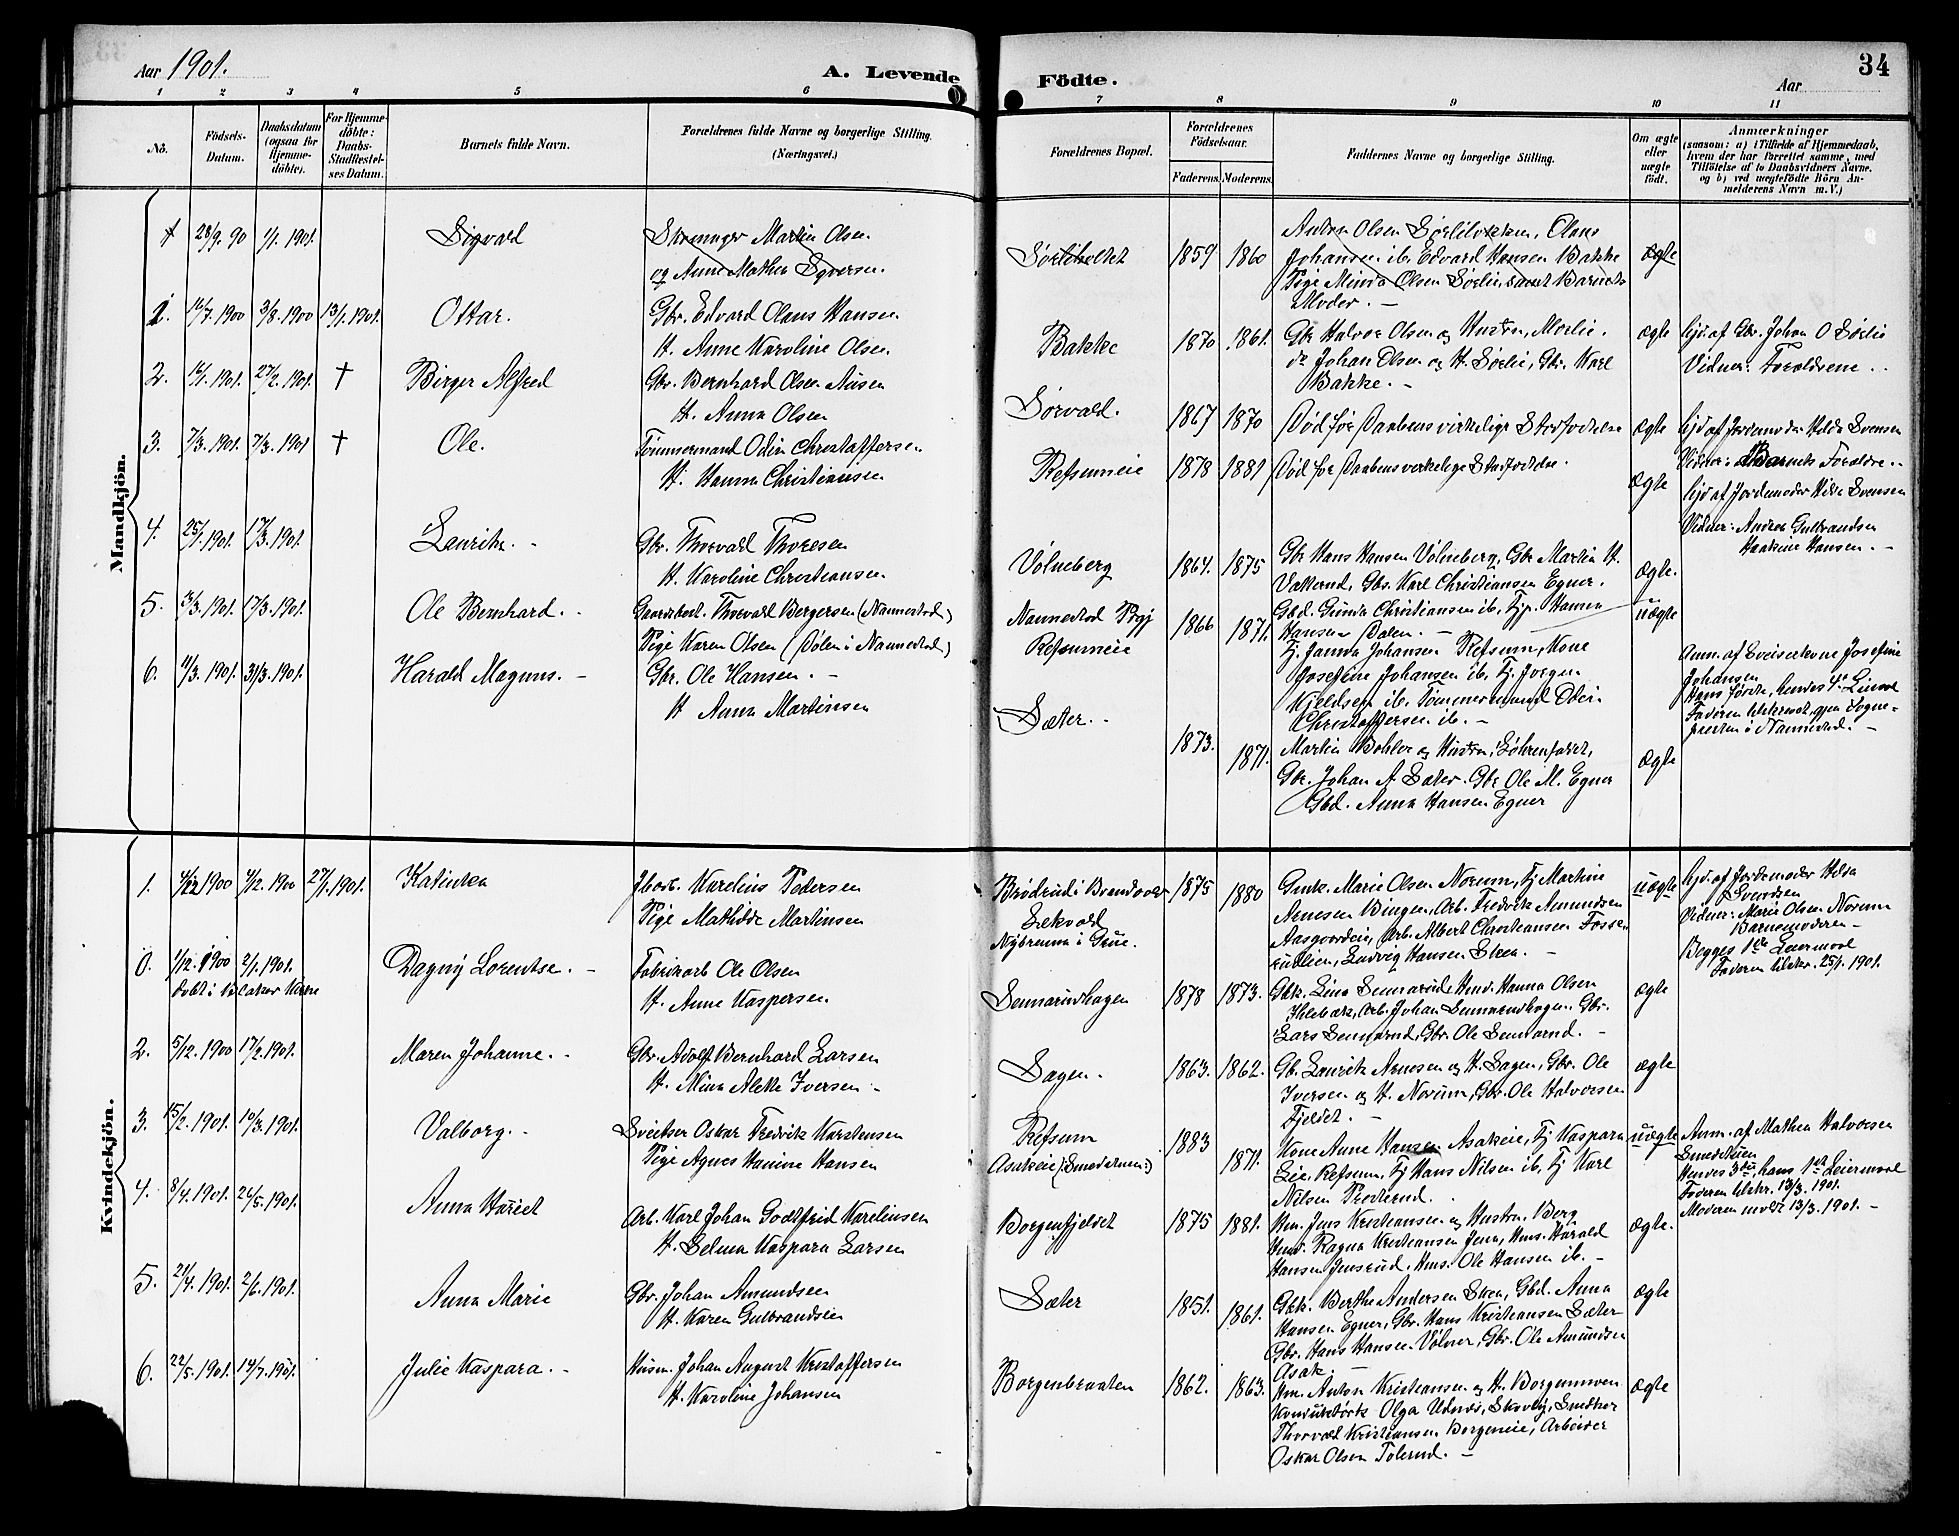 Aar 1901.
A. Levende Födte.
Aar
34
1 2 3 4 5 6 7 8 9 10 11
No.
Födsels-
Datum.
Daabsdatum
(ogsaa for
Hjemme-
döbte).
For Hjemme-
döbte:
Daabs-
Stadfæstel-
ses Datum.
Barnets fulde Navn.
Forældrenes fulde Navne og borgerlige Stilling.
(Næringsvei.)
Forældrenes Bopæl.
Forældrenes
Födselsaar.
Faderens. Moderens.
Faddernes Navne og borgerlige Stilling.
Om ægte
eller
uægte
födt.
Anmærkninger
(saasom: a) i Tilfælde af Hjemmedaab,
hvem der har forrettet samme, med
Tilföielse af to Daabsvidners Navne.
og b) ved uægtefödte Börn An-
melderens Navn m. V.)
Mandkjön.
28/9. 90 1/1. 1901. Sigvald
Martin Olsen
og Anne Mathea Syversen
1859 1860
Anton Olsen Olaus
Johansen ib. Edvard Hansen Bakke
Pige Minda Olsen Sørlie, samt Barnets
Moder. –
ægte
1. 16/7. 1900 3/8. 1900 13/1. 1901. Ottar.
Gbr. Edvard Olaus Hansen
H. Anne Karoline Olsen
Bakke 1870 1861.
Gbr Halvor Olsen og Hustru, Morlie.
do Johan Olsen og H. Sørlie, Gbr. Karl
Bakke. –
ægte
hjd. af Gbr. Johan O Sørlie
Vidner: Forældrene
2. 14/1. 1901. 27/2. 1901. † Birger Alfred
Gbr. Bernhard Olsen Aasen
H. Anna Olsen
Sørvald. 1867 1870
Død før Daabens virkelige Stadfæstelse
ægte
hjd af Jordemoder Hilda Svensen
Vidner: Barnets Forældre.
3. 7/3. 1901. 7/3. 1901 † Ole.
Tømmermand Odin Christoffersen
H. Hanna Christiansen
Refsumeie 1878 1881
Død før Daabens virkelige Stadfæstelse.
ægte
hjd af Jordemoder Hilda Svensen
Vidner: Andrea Gulbrandsen
Hansen. –
4. 25/1. 1901. 17/3. 1901. Lauritz. –
Gbr. Thorvald Thoresen
H. Karoline Christiansen
Vølneberg 1864. 1875
Gbr Hans Hansen Vølneberg, Gbr Martin H.
Vallerud, Gbs. Karl Christiansen Egner.
Gbd. Gunda Christiansen ib, Tjp. Hanna
Hansen Dalen. –
ægte.
5. 3/3. 1901. 17/3. 1901. Ole Bernhard. –
Thorvald Bergersen (Nannestad)
Pige Karen Olsen (Dølen i Nannestad)
Nannestad Prgj
Refsumeie
1866 1871.
Tj. Janna Johansen Refsum, Kone
Josefine Johansen ib, Tj. Jørgen
Kjeldsen ib, Tømmermand Odin
Christoffersen ib. –
uægte
Anm. af Sveiserkone Josefine
Johansen
Hans første, hendes 4de Leierm.
Faderen vedkjendt, gjen Sogne-
presten i Nannestad. –
6. 11/3. 1901. 31/3. 1901. Harald Magnus. –
Gbr. Ole Hansen. –
H Anna Martinsen
Sæter. – 1873. 1871.
Martin Bøhler og Hustru,
Gbr. Johan A Sæter. Gbr Ole M. Egner
Gbd. Anna Hansen Egner
ægte
Kvindekjön.
1. 4/12 1900 4/12. 1900 27/1. 1901. Katinka
Karelius Pedersen
Pige Mathilde Martinsen
Brødrud i Brandvold
Lekvold
1875 1880
Gmk. Marie Olsen Norum, Tj Martine
Arnesen Bingen, Arb. Fredrik Amundsen
Aasgaardeie, Arb. Albert Christiansen Fosse-
Ludvig Hansen Skea. –
uægte
hjd. af Jordemoder Hilda
Svendsen
Vidner: Marie Olsen Norum
Barnemoderen –
Begges 1ste Leiermaal
Faderen vedkr. 25/1. 1901.
0. 1/12. 1900 2/1. 1901. Dagny Lorentse. –
Fabrikarb Ole Olsen
H. Anne Kaspersen
Sennerudhagen 1878 1873.
Gbk. Lina Sennerud, Hmd. Hanna Olsen
Arb. Johan Sennerudhagen. Gbr.
Lars Sennerud, Gbr. Ole Sennerud. –
ægte
2. 5/12. 1900 17/2. 1901. Maren Johanne. –
Gbr. Adolf Bernhard Larsen
H. Mina Alette Iversen –
Sagen. 1863. 1862.
Gb. Lauritz Arnesen og H. Sagen, Gbr. Ole
Iversen og H. Norum, Gbr. Ole Halvorsen
Fjeldet. –
ægte
3. 15/2. 1901. 10/3. 1901. Valborg. –
Sveitser Oskar Fredrik Karstensen
Pige Agnes Hanine Hansen
Refsum
Asakeie
1883 1871.
Kone Anne Hansen Asakeie, Tj Kaspara
Lie, Refsum, Tj Hans Nilsen ib, Tj Karl
Nilsen
uægte
Anm. af Mathea Halvorsen
Hendes 3die, hans 1ste Leiermaal
Faderen vedkr. 13/3. 1901.
Moderen 13/3. 1901. –
4. 8/4. 1901. 26/5. 1901. Anna Hariet
Arb. Karl Johan Godtfred Kareliusen
H. Selma Kaspara Larsen
Borgenfjeldet 1875 1881.
Hm. Jens Kristiansen og Hustru Berg
Hmd. Ragna Kristiansen Hms. Harald
Hansen Jensrud, Hms. Ole Hansen ib. –
ægte.
5. 21/4. 1901. 2/6. 1901. Anna Marie
Gbr. Johan Amundsen
H. Karen Gulbrandsen
Sæter 1851. 1861.
Gbk. Berthe Andersen Skea, Gbd. Anna
Hansen Egner, Gbr. Hans Kristiansen Sæter
Gbr. Hans Hansen Vølner, Gbr. Ole Amundsen
Asak. –
ægte
6. 22/5. 1901. 14/7. 1901. Julie Kaspara. –
Husm. Johan August Kristoffersen
H. Karoline Johansen
Borgenbraaten 1862. 1863.
Hm. Anton Kristiansen og H. Borgenmoen
Olga Udnæs, Skovby, Smedker
Thorvald Kristiansen Borgeneie, Arbeider
Oskar Olsen Tolerud. –
ægte